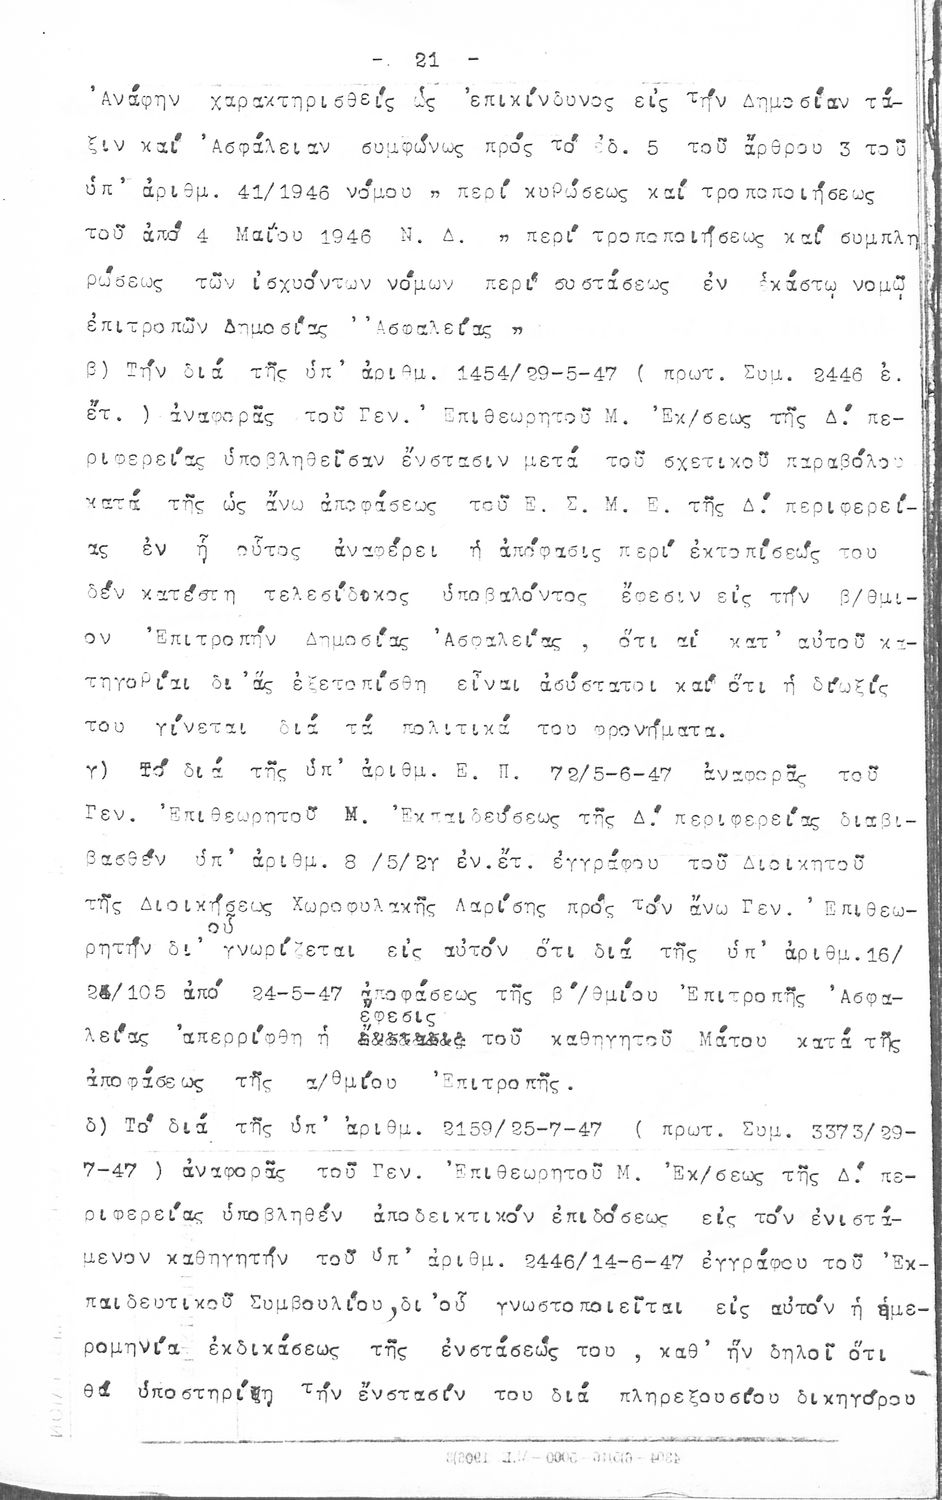 - 21 -
'Ανάφην χαρακτηρισθείς ὡς 'επικίνδυνος εἰς τήν Δημοσίαν τά-
ξιν καί 'Ασφάλειαν συμφώνως πρός τό ἐδ. 5 τοῦ ἄρθρου 3 τοῦ
ὑπ' ἀριθμ. 41/1946 νόμου " περί κυρώσεως καί τροποποιήσεως
τοῦ ἀπό 4 Μαΐου 1946 Ν. Δ. " περί τροποποιήσεως καί συμπλη
ρώσεως τῶν ἰσχυόντων νόμων περί συστάσεως ἐν ἑκάστῳ νομῷ
ἐπιτροπῶν Δημοσίας ''Ασφαλείας "
β) Τήν διά τῆς ὑπ' ἀριθμ. 1454/29-5-47 ( πρωτ. Συμ. 2446 ἐ.
ἔτ. ) ἀναφορᾶς τοῦ Γεν.' Επιθεωρητοῦ Μ. 'Εκ/σεως τῆς Δ.' πε-
ριφερείας ὑποβληθεῖσαν ἔνστασιν μετά τοῦ σχετικοῦ παραβόλου
κατά τῆς ὡς ἄνω ἀποφάσεως τοῦ Ε. Σ. Μ. Ε. τῆς Δ.' περιφερεί-
ας ἐν ᾗ οὗτος ἀναφέρει ἡ ἀπόφασις περί ἐκτοπίσεώς του
δέν κατέστη τελεσίδικος ὑποβαλόντος ἔφεσιν εἰς τήν β/θμι-
ον 'Επιτροπήν Δημοσίας 'Ασφαλείας , ὅτι αἱ κατ' αὐτοῦ κα-
τηγορίαι δι 'ἅς ἐξετοπίσθη εἶναι ἀσύστατοι καί ὅτι ἡ δίωξίς
του γίνεται διά τά πολιτικά του φρονήματα.
γ) Τό διά τῆς ὑπ' ἀριθμ. Ε. Π. 72/5-6-47 ἀναφορᾶς τοῦ
Γεν. 'Επιθεωρητοῦ Μ. 'Εκπαιδεύσεως τῆς Δ.' περιφερείας διαβι-
βασθέν ὑπ' ἀριθμ. 8 /5/2γ ἐν.ἔτ. ἐγγράφου τοῦ Διοικητοῦ
τῆς Διοικήσεως Χωροφυλακῆς Λαρίσης πρός τόν ἄνω Γεν. ' Επιθεω-
οὗ
ρητήν δι' γνωρίζεται εἰς αὐτόν ὅτι διά τῆς ὑπ' ἀριθμ.16/
24/105 ἀπό 24-5-47 ἀποφάσεως τῆς β'/θμίου 'Επιτροπῆς 'Ασφα-
ἔφεσις
λείας 'απερρίφθη ἡ ἔνστασις τοῦ καθηγητοῦ Μάτου κατά τῆς
ἀποφάσεως τῆς α/θμίου 'Επιτροπῆς.
δ) Τό διά τῆς ὑπ' ἀριθμ. 2159/25-7-47 ( πρωτ. Συμ. 3373/29-
7-47 ) ἀναφορᾶς τοῦ Γεν. 'Επιθεωρητοῦ Μ. 'Εκ/σεως τῆς Δ.' πε-
ριφερείας ὑποβληθέν ἀποδεικτικόν ἐπιδόσεως εἰς τόν ἐνιστά-
μενον καθηγητήν τοῦ ὑπ' ἀριθμ. 2446/14-6-47 ἐγγράφου τοῦ 'Εκ-
παιδευτικοῦ Συμβουλίου,δι 'οὗ γνωστοποιεῖται εἰς αὐτόν ἡ ἡμε-
ρομηνία ἐκδικάσεως τῆς ἐνστάσεώς του , καθ' ἥν δηλοῖ ὅτι
θά ὑποστηρίξῃ τήν ἔνστασίν του διά πληρεξουσίου δικηγόρου